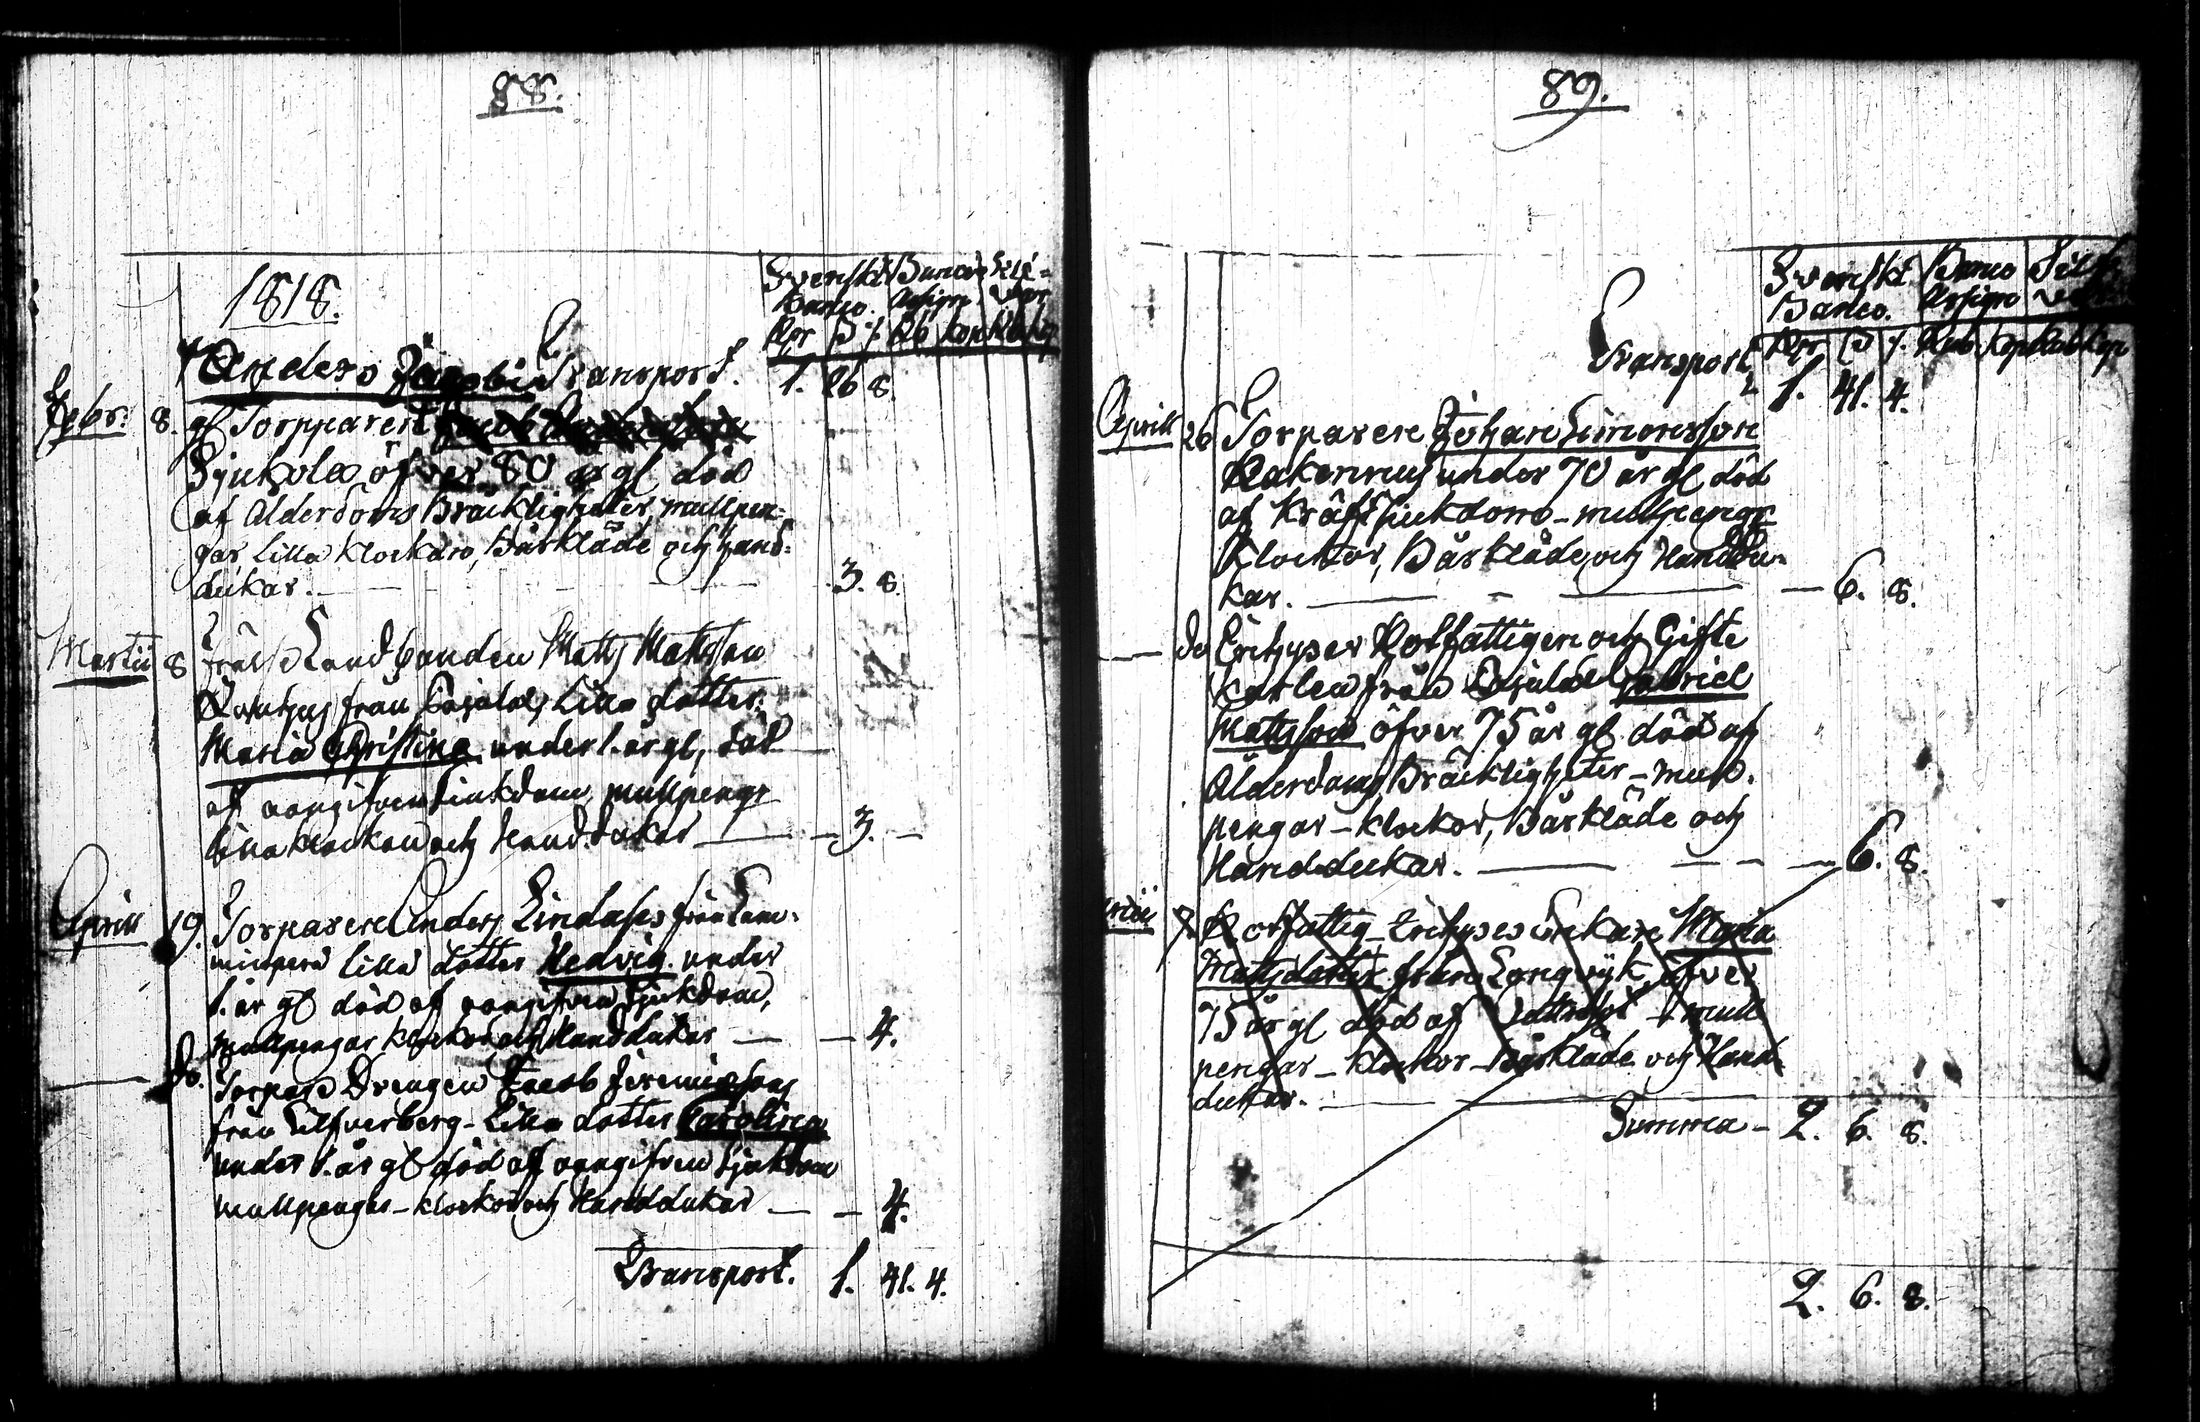 88.
1818.
Svenskt Banco Silf=
Banco. Assign. ver
Rdr ß r. Rb kop Rb kop
Anders Jacobss Transport. 1. 26 8.
Febr. 8. gl Torpparen
öfver 80 gl död
af Ålderdoms Bräckligheter mullpen=
gar lilla klockan, Bårkläde och hand=
dukar. 3. 8.
Martii 8 frälse Landbonden Matts Mattsson
från lilla dotter
Maria Christina under 1. år gl, död
af oangifven siukdom, mullpengr
lilla klockan och handdukar 3.
Aprill 19. Torparen Anders Lindahls från Lam=
minperä lilla dotter Hedvig under
1. år gl död af oangifven sjukdom,
mullpengar klockor och Handdukar 4.
do. Torpare Drengen Jacob Jeremiæsons
från Silfverberg lilla dotter Carolina
under 1. år gl död af oangifven sjukdom
mullpengar - klockor och Handdukar 4.
Transport. 1. 41. 4.
89.
Svenskt Banco Silf
Banco. Assign ver
Rdr ß r. Rub. kop Rub kop
Transport 1. 41. 4.
Aprill 26 Torparen Johan Simonsson
under 70 år gl död
af Kräftsiukdom - mullpengr
Klockor, Bårkläde och Handdu=
kar. 6. 8.
do Rotfattigen och Gifte
karlen från Gabriel
Mattsson öfver 75 år gl död af
Ålderdoms Bräckligheter - mull.
pengar - klockor, Bårkläde och
Handdukar. 6. 8.
Rotfattig Enkan Maria
Mattsdotter från Långvik öfver
75 år gl död af - mull
pengar - klockor - Bårkläde och Hand
dukar.
Summa - 2. 6. 8.
2. 6. 8.